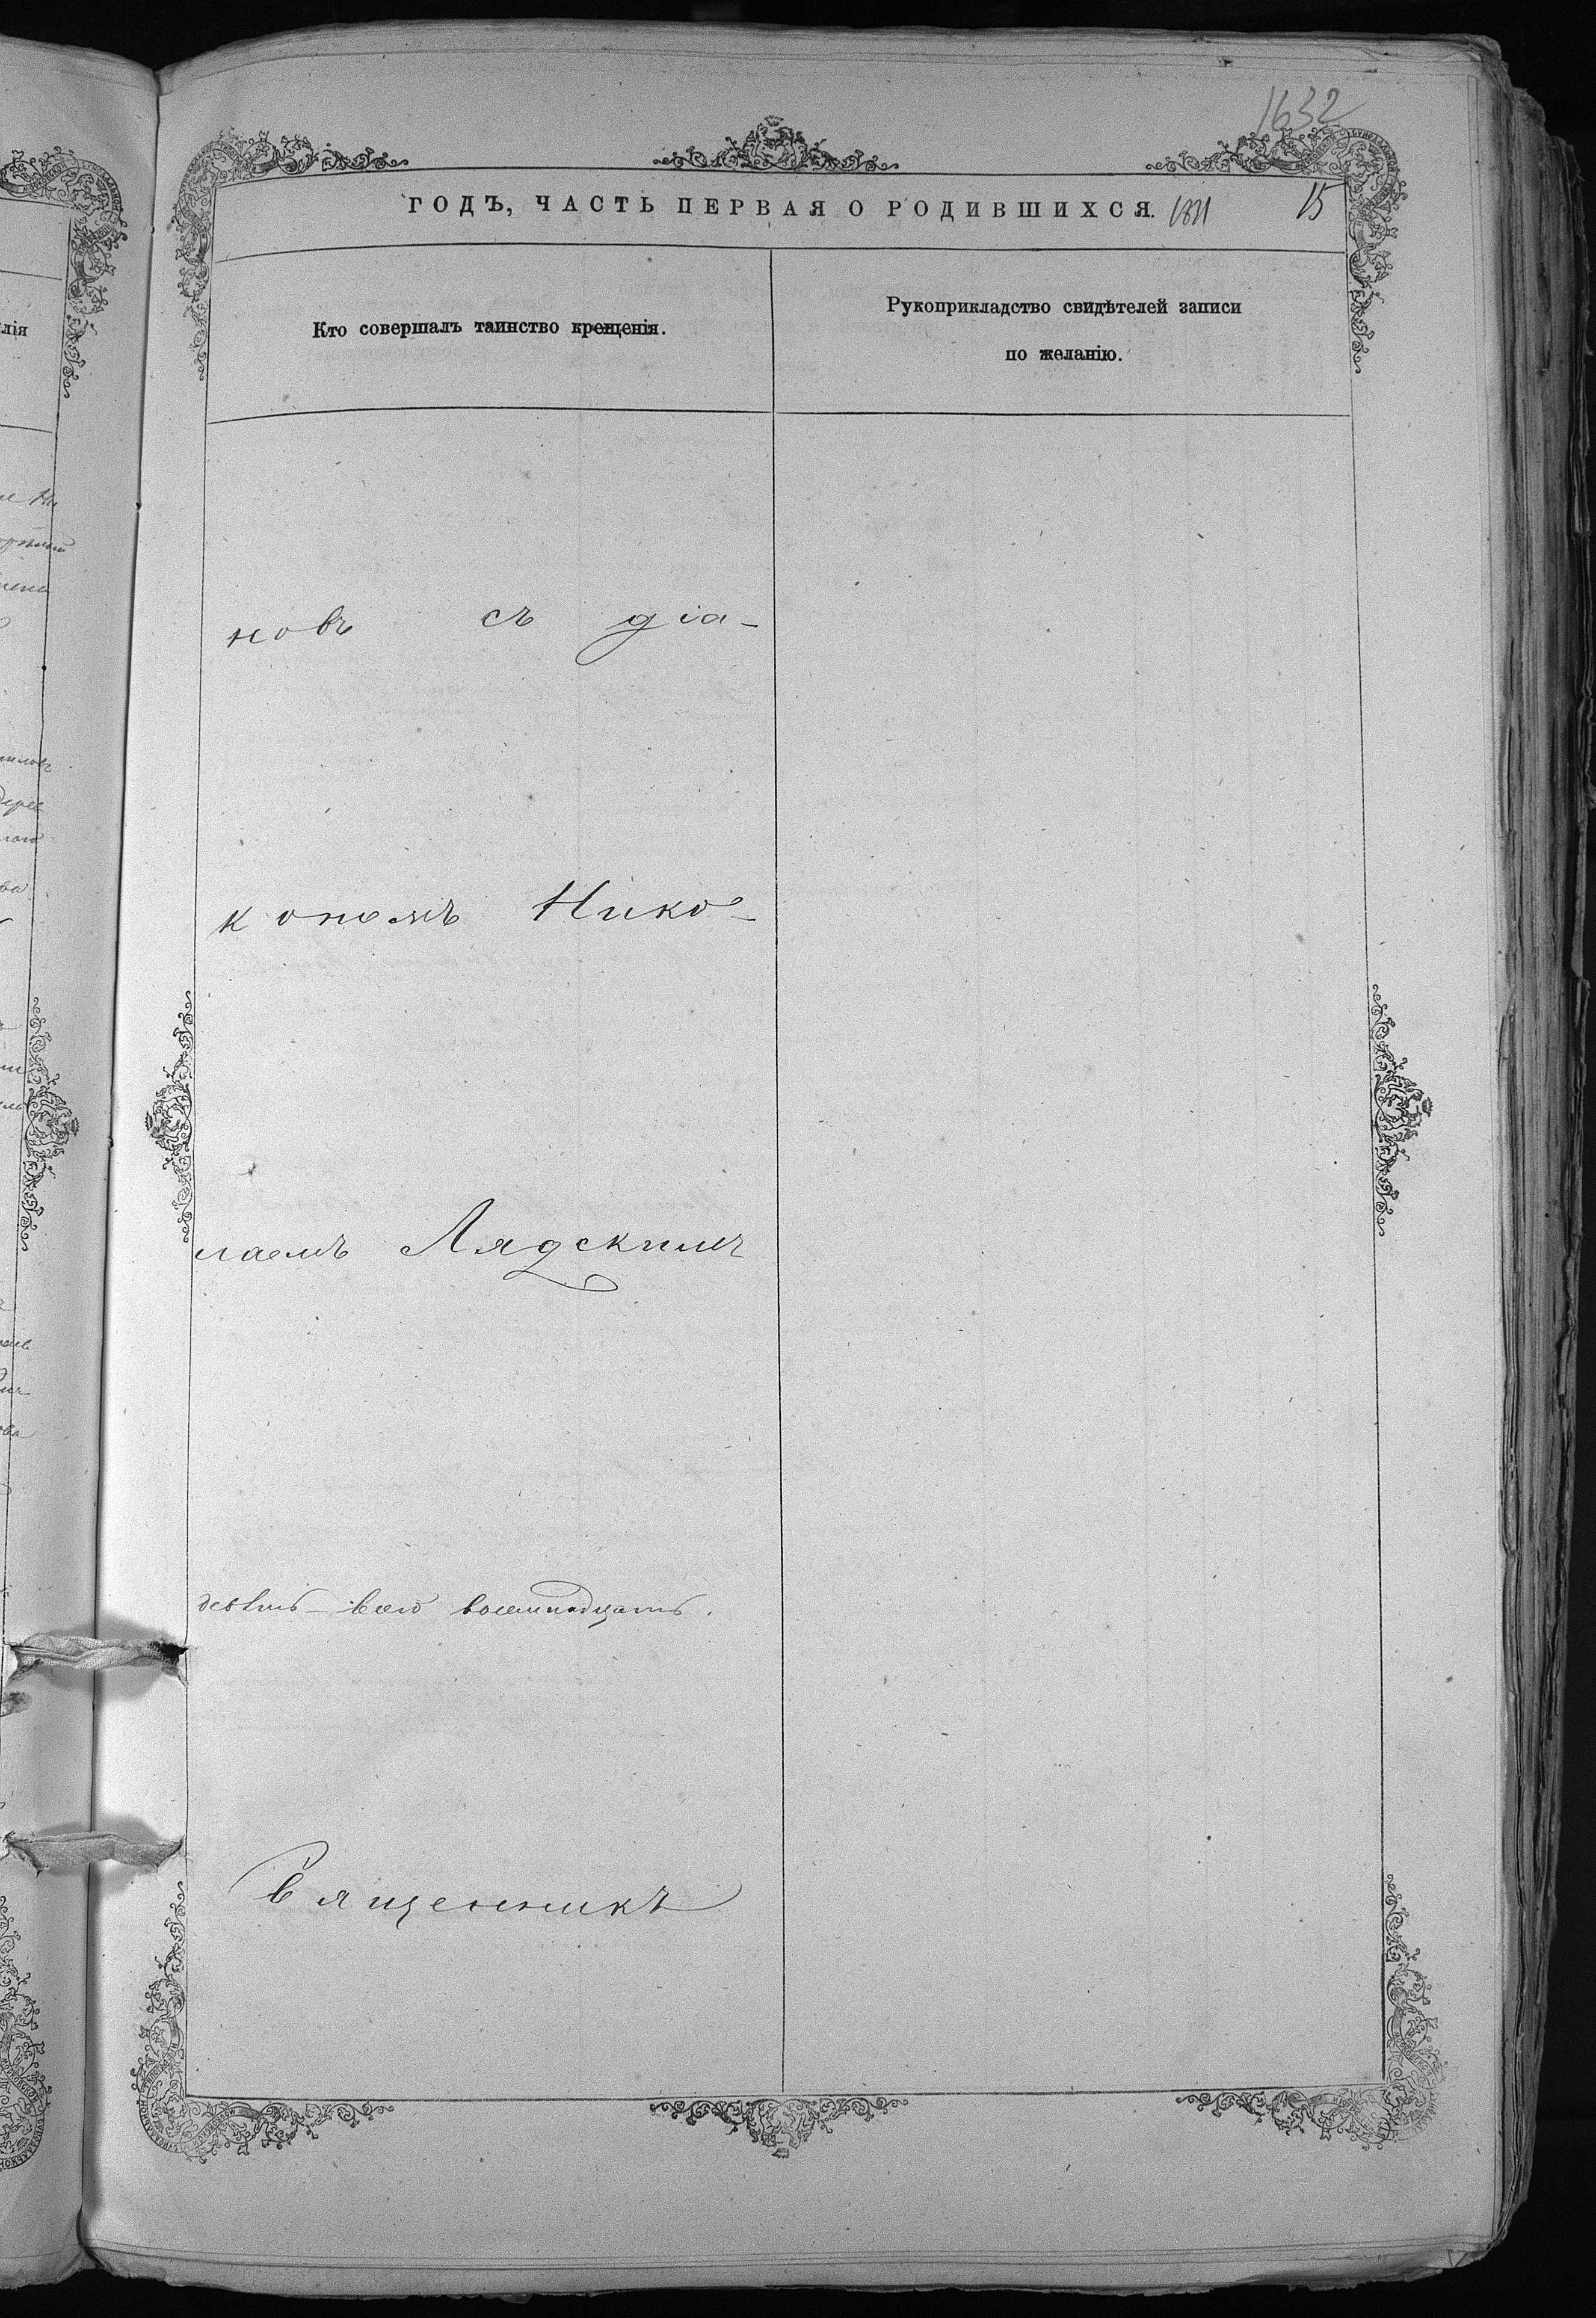 1632
ГОДЪ, ЧАСТЬ ПЕРВАЯ О РОДИВШИХСЯ. 15
Кто совершалъ таинство крещенія.
Рукоприкладство свидѣтелей записи
по желанію.
новъ съ діа-
кономъ Нико-
лаемъ Лядскимъ
всего восемнадцать.
Священникъ
лія